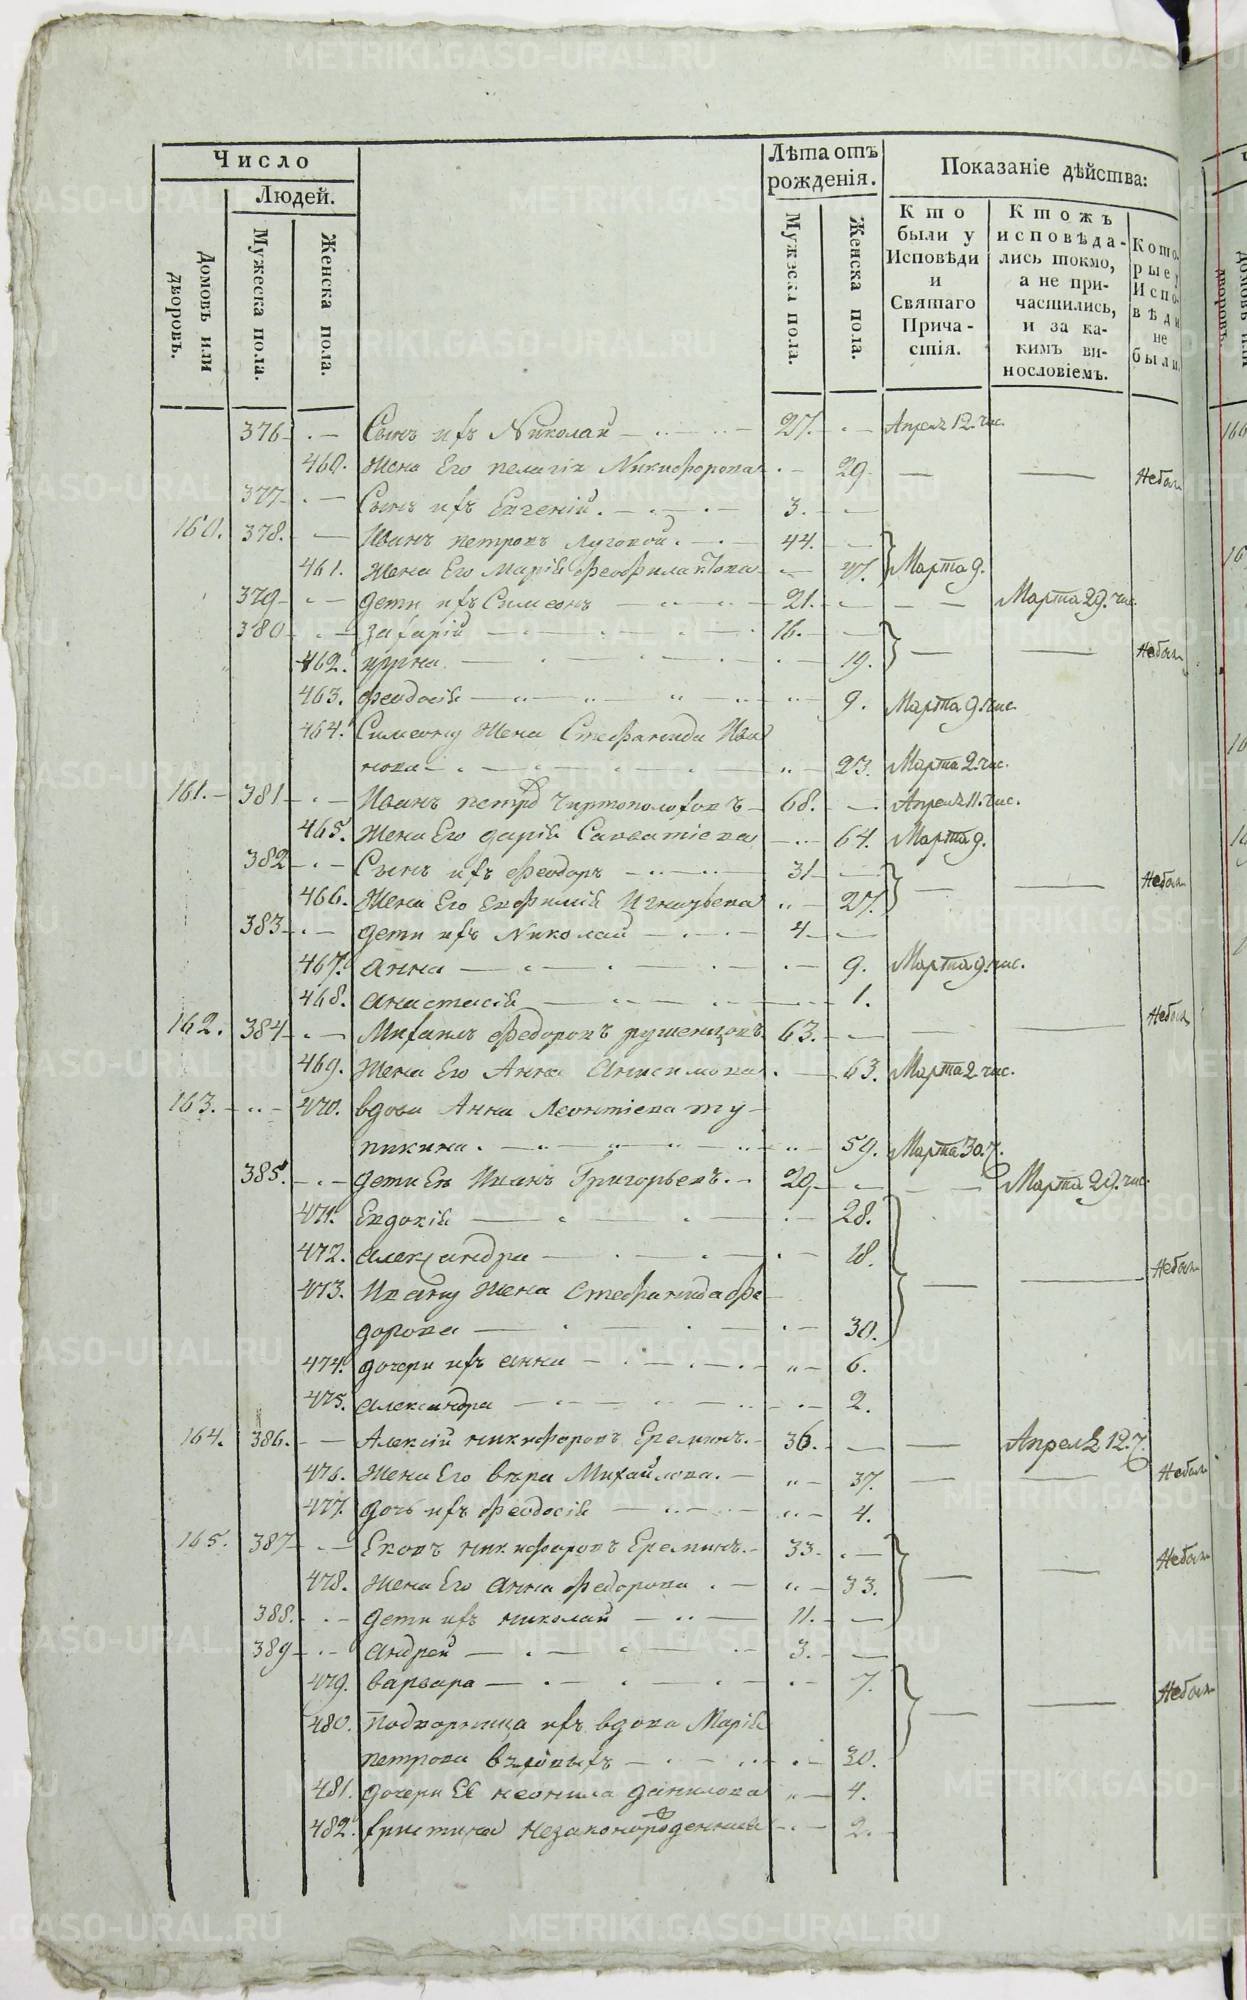 METRIKI.GASO-URAL.RU
Число
Людей.
Домовъ или дворовъ.
Мужеска пола.
Женска пола.
Лѣта отъ рожденія.
Мужеска пола.
Женска пола.
Показаніе дѣйства:
Кто были у Исповѣди и Святаго Прича-стія.
Ктожъ исповѣда-лись токмо, а не при-частились, и за ка-кимъ ви-нословіемъ.
Кото-рые у Испо-вѣди не были.
376. Сынъ ихъ Николай 27. Апреля 12. чис.
460. Жена Его пелагія Никифорова 29 — — Небыл
377 Сынъ ихъ Евгеній. 3.
160. 378. Иванъ петровъ Луговой. 44.
461. Жена Его Марія Феофилактова 47. Марта 9.
379 дети ихъ Симеонъ 21. — Марта 29. чис.
380 Захарій 16.
462. ирина 19. — — Небыл
463. феодосія 9. Марта 9. чис.
464. Симеону Жена Стефанида Ива
нова 23. Марта 2. чис.
161. 381 Иванъ петровъ Чертополоховъ 68. Апреля 11. чис.
465. Жена Его дарія Савватіева 64. Марта 9.
382 Сынъ ихъ Феодоръ 31
466. Жена Его Евфимія Игнатьева 27. — — Небыл
383 дети ихъ Николай 4
467. анна 9. Марта 9. чис.
468. анастасія 1.
162. 384 Михаилъ Федоровъ 63. — — Небыл
469. Жена Его Анна Анисимова 63. Марта 2 чис.
163. 470. вдова Анна Леонтіева ту
пикина. 59. Марта 30. ч.
385. дети Ея Иванъ Григорьевъ. 29. — Марта 29. чис.
471. Евдокія 28.
472. александра 18.
473. Ивану Жена Стефанида Фе — — Небыл
дорова 30.
474. дочери ихъ анна 6.
475. александра 2.
164. 386. Алексій никифоровъ Ереминъ. 36. — Апреля 12. ч.
476. Жена Его вѣра Михайлова. 37. — — Небыл
477. дочь ихъ феодосія 4.
165. 387 никифоровъ Ереминъ. 33.
478. Жена Его анна федорова 33. — — Небыл
388. дети ихъ николай 11.
389 андрей 3.
479. варвара 7.
480. Подворница ихъ вдова Марія — — Небыл
петрова 30.
481. дочери Ея неонила данилова 4.
482. христина незаконорожденная 2.